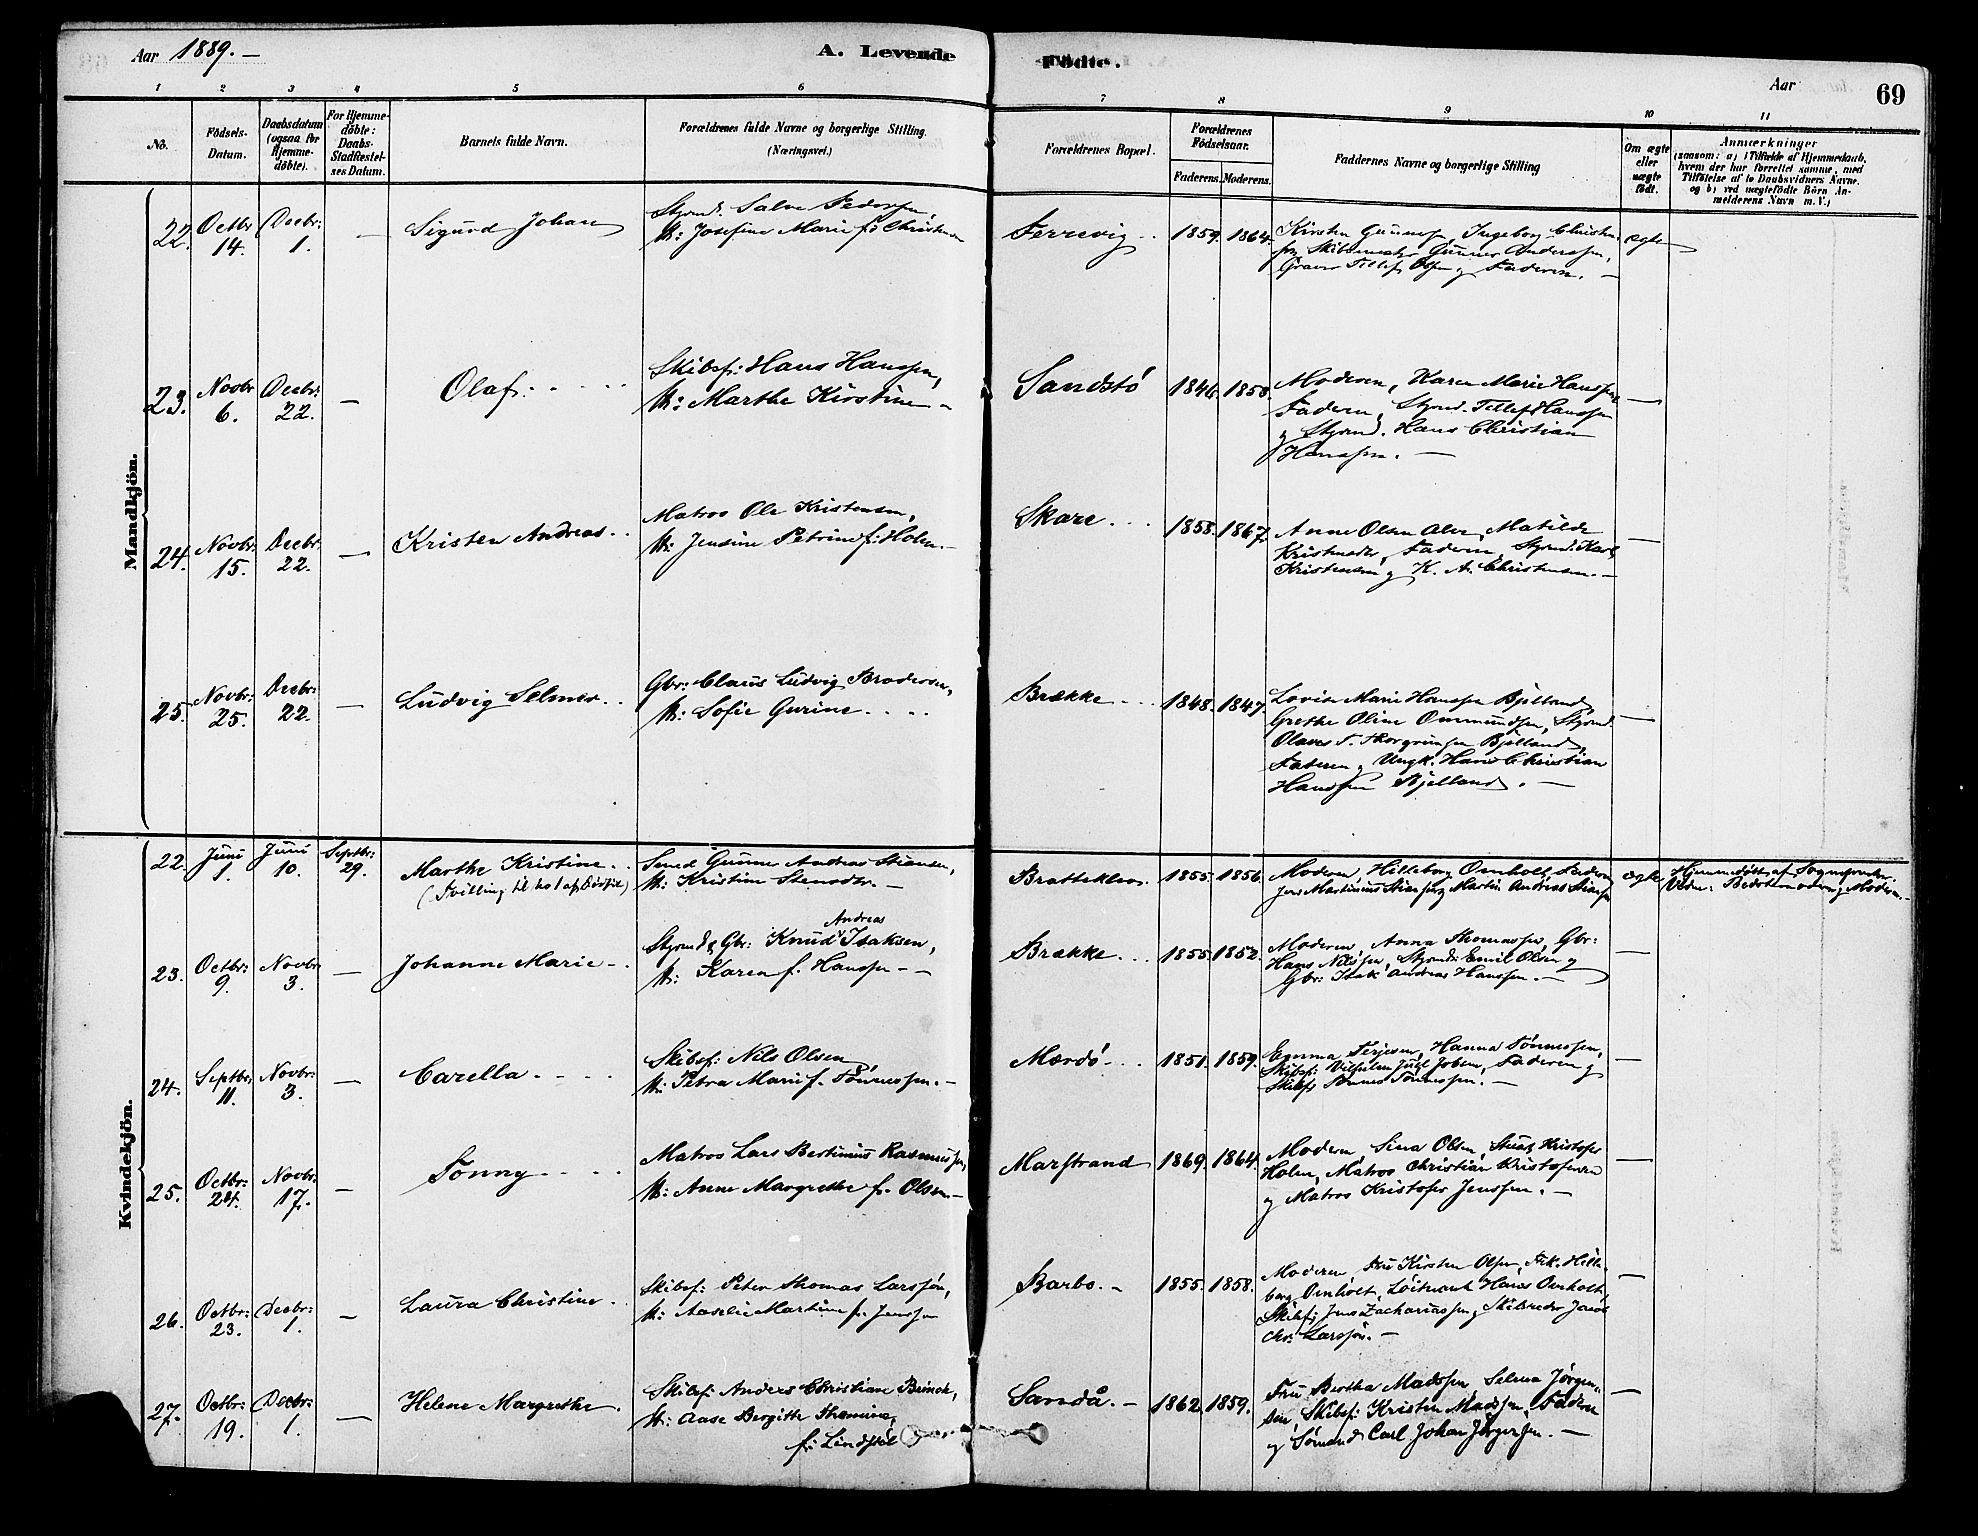 Aar 1889. —
A. Levende
Fødte.
Aar
69
1 2 3 4 5 6 7 8 9 10 11
No.
Fødsels-
Datum.
Daabsdatum
(ogsaa for
Hjemme-
døbte).
For Hjemme-
døbte:
Daabs-
Stadfæstel-
ses Datum.
Barnets fulde Navn.
Forældrenes fulde Navne og borgerlige Stilling.
(Næringsvei.)
Forældrenes Bopæl.
Forældrenes
Fødselsaar.
Faderens. Moderens.
Faddernes Navne og borgerlige Stilling
Om ægte
eller
uægte
født.
Anmærkninger
(saasom: a) i Tilfælde af Hjemmedaab,
hvem der har forrettet samme, med
Tilføielse af to Daabsvidners Navne,
og b) ved uægtefødte Børn An-
melderens Navn m. V.)
Mandkjön.
22. Octbr 14. Decbr: 1. — Sigurd Johan
Styrmd. Salve Pedersen,
H: Josefine Marie f. Christensen
Ferrevig .. 1859. 1864.
Kirsten Gunnersen, Ingeborg Christen-
sen, Skibstømrer Gunner Anderssen,
Graver Tellef Olsen og Faderen. —
ægte
23. Novbr 6. Decbr: 22. — Olaf. . . . . .
Skibsf: Hans Hanssen,
H: Marthe Kirstine —
Sandstø 1846. 1850.
Moderen, Karen Marie Hanssen,
Faderen, Styrmd. Tellef Hanssen
og Styrmd. Hans Christian
Hanssen. —
—
24. Novbr: 15. Decbr: 22. — Kristen Andreas . .
Matros Ole Kristensen,
H: Jensine Petrine f: Holm. —
Skare . . . 1858. 1867.
Anne Olsen Alve, Matilde
Kristensdtr, Faderen, Styrmd: Karl
Kristensen og K. A. Christensen. —
—
25. Novbr: 25. Decbr: 22. — Ludvig Selmer . .
Gbr: Claus Ludvig Brodersen,
H: Sofie Gurine . . . .
Brække . . . 1848. 1847.
Lovise Marie Hanssen Bjelland,
Grethe Oline Ommundsen, Styrmd.
Olaves T. Thorgrimsen Bjelland,
Faderen og Ungk. Hans Christian
Hanssen Bjelland. —
—
Kvindekjön.
22. Juni 1. Juni 10. Septbr: 29. Marthe Kristine . .
(Tvilling til no 1 af Dødfød)
Smed Gunner Andreas Stiansen,
H: Kristine Stensdtr. —
Brattekleiv. 1855. 1856.
Moderen, Hilleborg Omholt, Faderen
Jens Martinius Stiansen og Martin Andreas Stiansen
ægte
Hjemmedøbt af Sognepresten.
Vidn: Bedstemoder og Moderen. —
23. Octbr: 9. Novbr 3. — Johanne Marie — .
Andreas
Styrmd & Gbr: Knud Isaksen,
H: Karen f. Hanssen — —
Brække . . . 1855. 1852.
Moderen, Anna Thomassen, Gbr:
Hans Nilssen, Styrmd: Emil Olsen og
Gbr: Isak Andreas Hanssen. —
—
24. Septbr: 11. Novbr: 3. — Carella . . . .
Skibsf: Nils Olsen
H: Petra Marie f. Tønnessen. —
Mærdø . . . 1851. 1859.
Emma Terjesen, Hanna Tønnessen,
Skibsf: Vilhelm Juel Jobsen, Faderen og
Skibsf: Tønnes Tønnessen. —
—
25. Octbr: 24. Novbr: 17. — Tonny . . . .
Matros Lars Bertinius Rasmussen,
H: Anne Margrethe f. Olsen. —
Marstrand 1869. 1864.
Moderen, Sina Olsen, Kristofer
Holm, Matros Christian Kristofersen
og Matros Kristofer Jenssen. —
—
26. Octbr: 23. Decbr: 1. — Laura Christine .
Skibsf: Peter Thomas Larssøn,
H: Aaselie Martine f. Jenssen
Barbo. — 1855. 1858.
Moderen, Fru Kirsten Olsen, Frk. Hille-
borg Omholt, Løitnant Hans Omholt,
Skibsf: Jens Zachariassen og Skibsreder Jacob
Chr: Larssøn. —
—
27. Octbr: 19. Decbr: 1. — Helene Margrethe .
Skibsf: Anders Christian Brinch,
H: Aase Bergitte Thomine,
f: Lindstøl
Sandå. — 1862. 1859.
Fru Bertha Madssen, Selma Jørgen-
sen, Skibsf: Kristen Madssen, Faderen
og Sømand Carl Johan Jørgensen. —
—